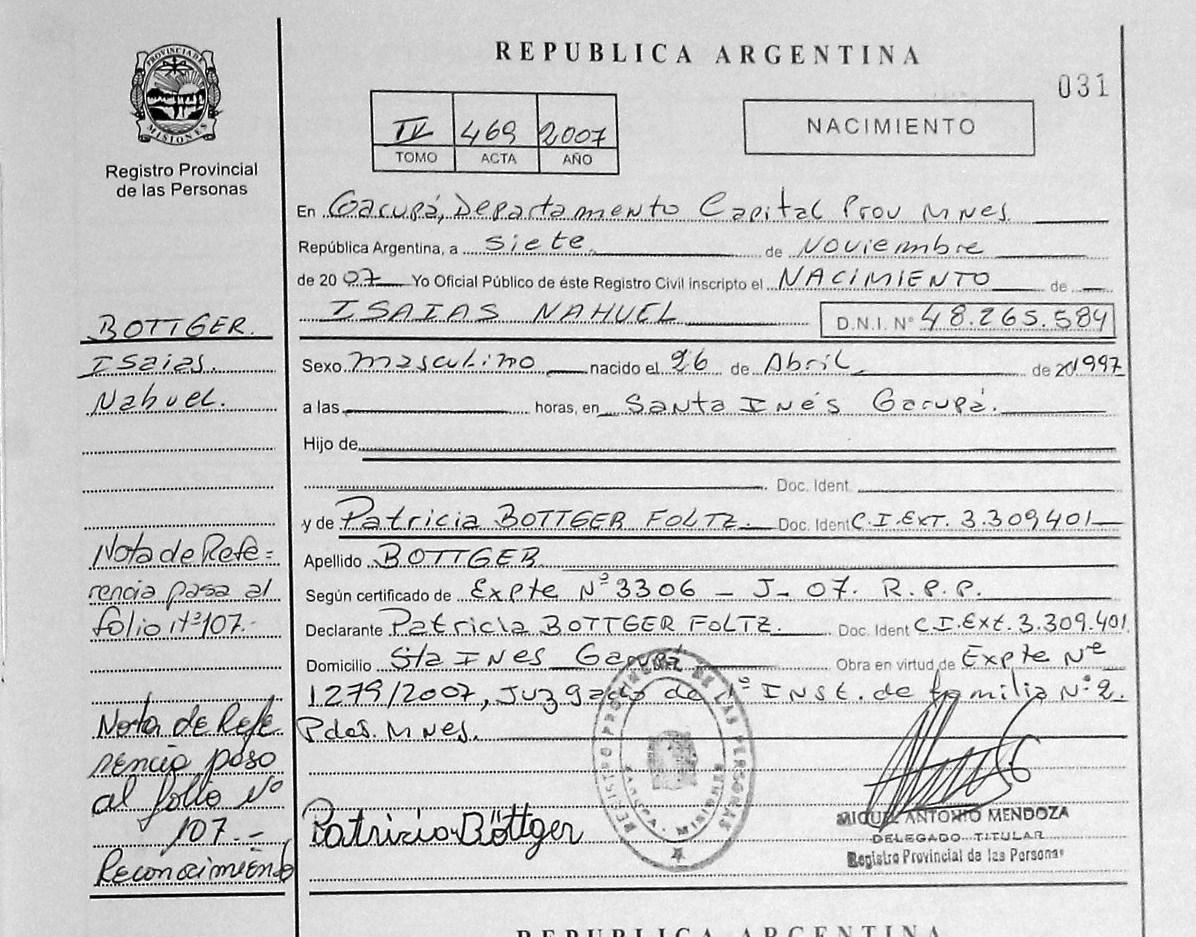 REPUBLICA ARGENTINA
031
PROVINCIA DE MISIONES
Registro Provincial
de las Personas
IV 469 2007
TOMO ACTA AÑO
NACIMIENTO
En Garupá, Departamento Capital Prov Mnes.
República Argentina, a siete de Noviembre
de 2007 Yo Oficial Público de éste Registro Civil inscripto el NACIMIENTO de
ISAIAS NAHUEL D.N.I. N° 48.265.584
Sexo masculino nacido el 26 de Abril de 1997
a las horas, en Santa Inés Garupá.
Hijo de
Doc. Ident.
y de Patricia BOTTGER FOLTZ. Doc. Ident C.I.EXT. 3.309401
Apellido BOTTGER
Según certificado de Expte Nº 3306 - J- 07. R.P.P.
Declarante Patricia BOTTGER FOLTZ. Doc. Ident C.I.Ext. 3.309.401
Domicilio Sta INES Garupá Obra en virtud de Expte Nº
1279/2007, Juzgado de 1º INST. de familia Nº 2.
Pdas. Mnes.
Patricia Böttger
REGISTRO PROVINCIAL DE LAS PERSONAS
MIGUEL ANTONIO MENDOZA
DELEGADO TITULAR
Registro Provincial de las Personas
BOTTGER.
Isaias.
Nahuel.
Nota de Refe=
rencia pasa al
folio nº 107.-
Nota de Refe
rencia paso
al folio Nº
107.-
Reconocimiento
REPUBLICA ARGENTINA